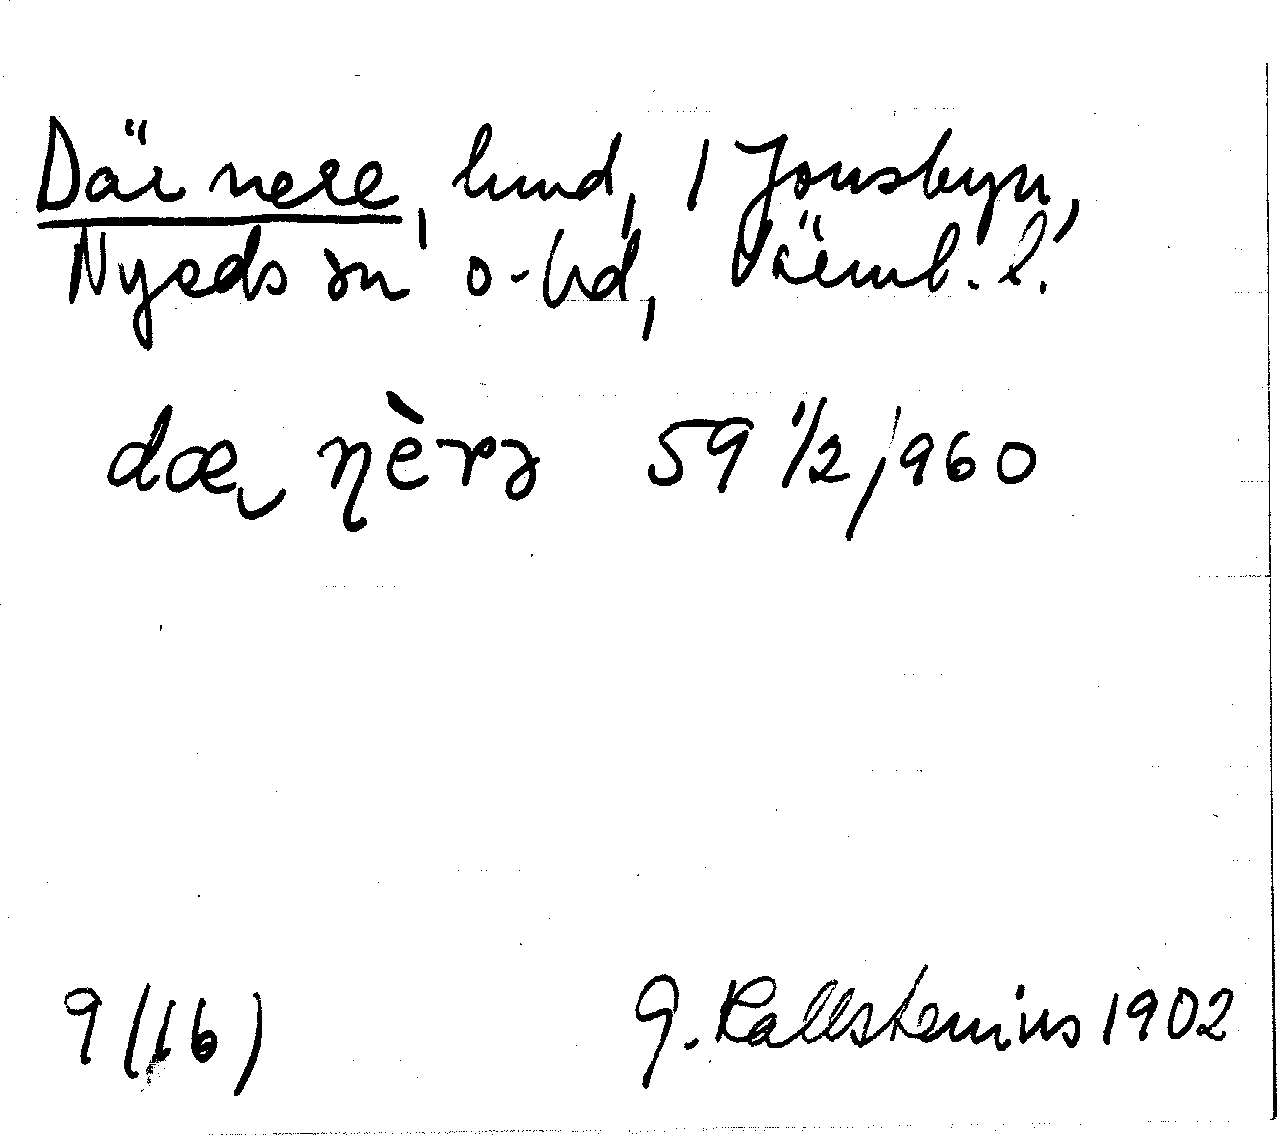 Där nere, lund, 1 Jonsbyn,
Nyeds sn o-hd, Värml. l.
dæ ɳèrə 59 1/2/960
9 (16)
G. Kallstenius 1902